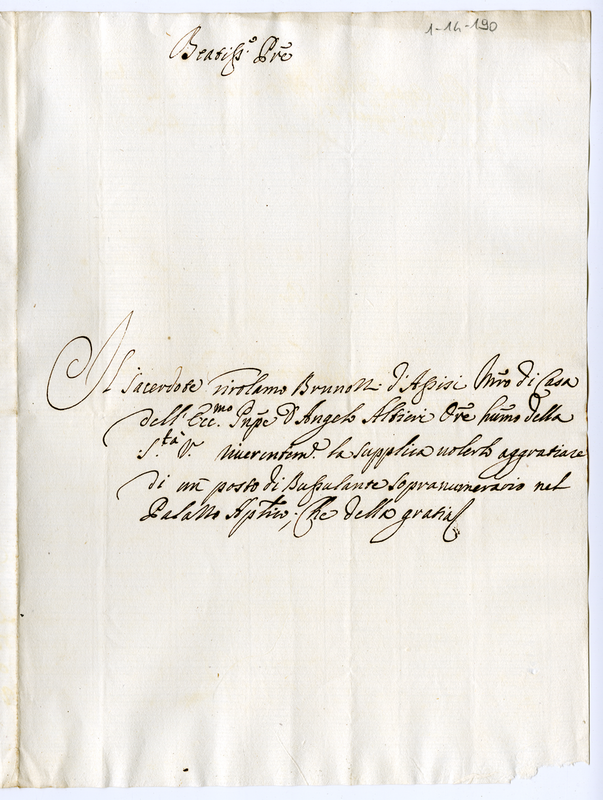 1-14-190
Beatiss.º Pre
Il Sacerdote Girolamo Brunotti d'Assisi Mro di Casa
dell' Ecc.mo Pnpe D Angelo Altieri Ore humo della
S.tà V. riverentem.e la supplica volerlo aggratiare
di un posto di Bussolante sopranumerario nel
Palazzo Aptico; Che della gratia